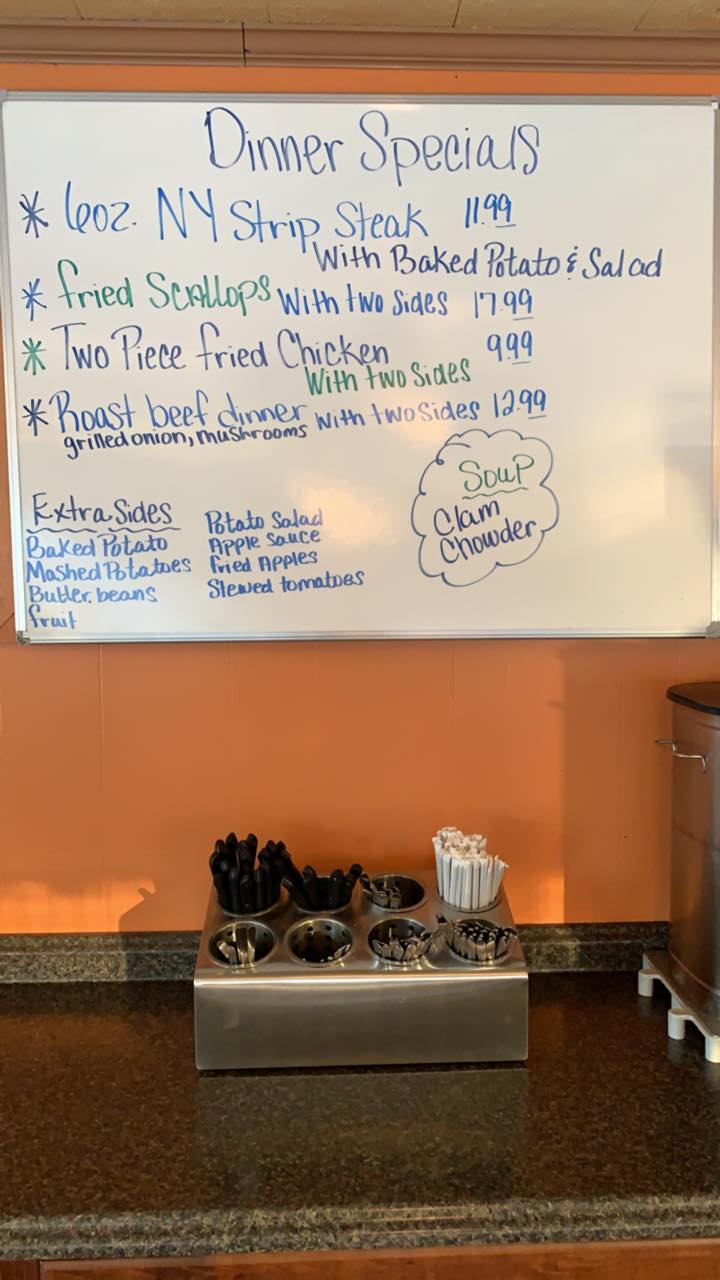 Dinner Specials
* 6oz. NY Strip Steak 11.99
With Baked Potato & Salad
* fried Scallops With two Sides 17.99
* Two Piece fried Chicken 9.99
With two Sides
* Roast beef dinner With two Sides 12.99
grilled onion, mushrooms
Soup
Clam
Chowder
Extra Sides
Baked Potato
Mashed Potatoes
Butter beans
fruit
Potato Salad
Apple sauce
fried Apples
Stewed tomatoes